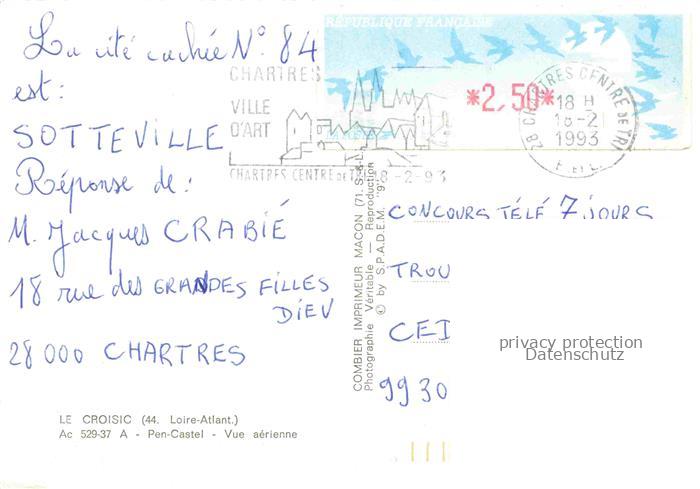 La cité cachée N° 84
est :
SOTTEVILLE
Réponse de :
M. Jacques CRABIÉ
18 rue des GRANDES FILLES
DIEU
28 000 CHARTRES
LE CROISIC (44. Loire-Atlant.)
Ac 529-37 A - Pen-Castel - Vue aérienne
RÉPUBLIQUE FRANÇAISE
*2,50*
CHARTRES
VILLE
D'ART
CHARTRES CENTRE DE TRI 18-2-93
28 CHARTRES CENTRE DE TRI
18 H
18-2
1993
COMBIER IMPRIMEUR MACON (71. S.-&-L.)
Photographie Véritable — Reproduction
© by S.P.A.D.E.M. '9
CONCOURS TÉLÉ 7 JOURS
TROU
CEI
9930
privacy protection
Datenschutz